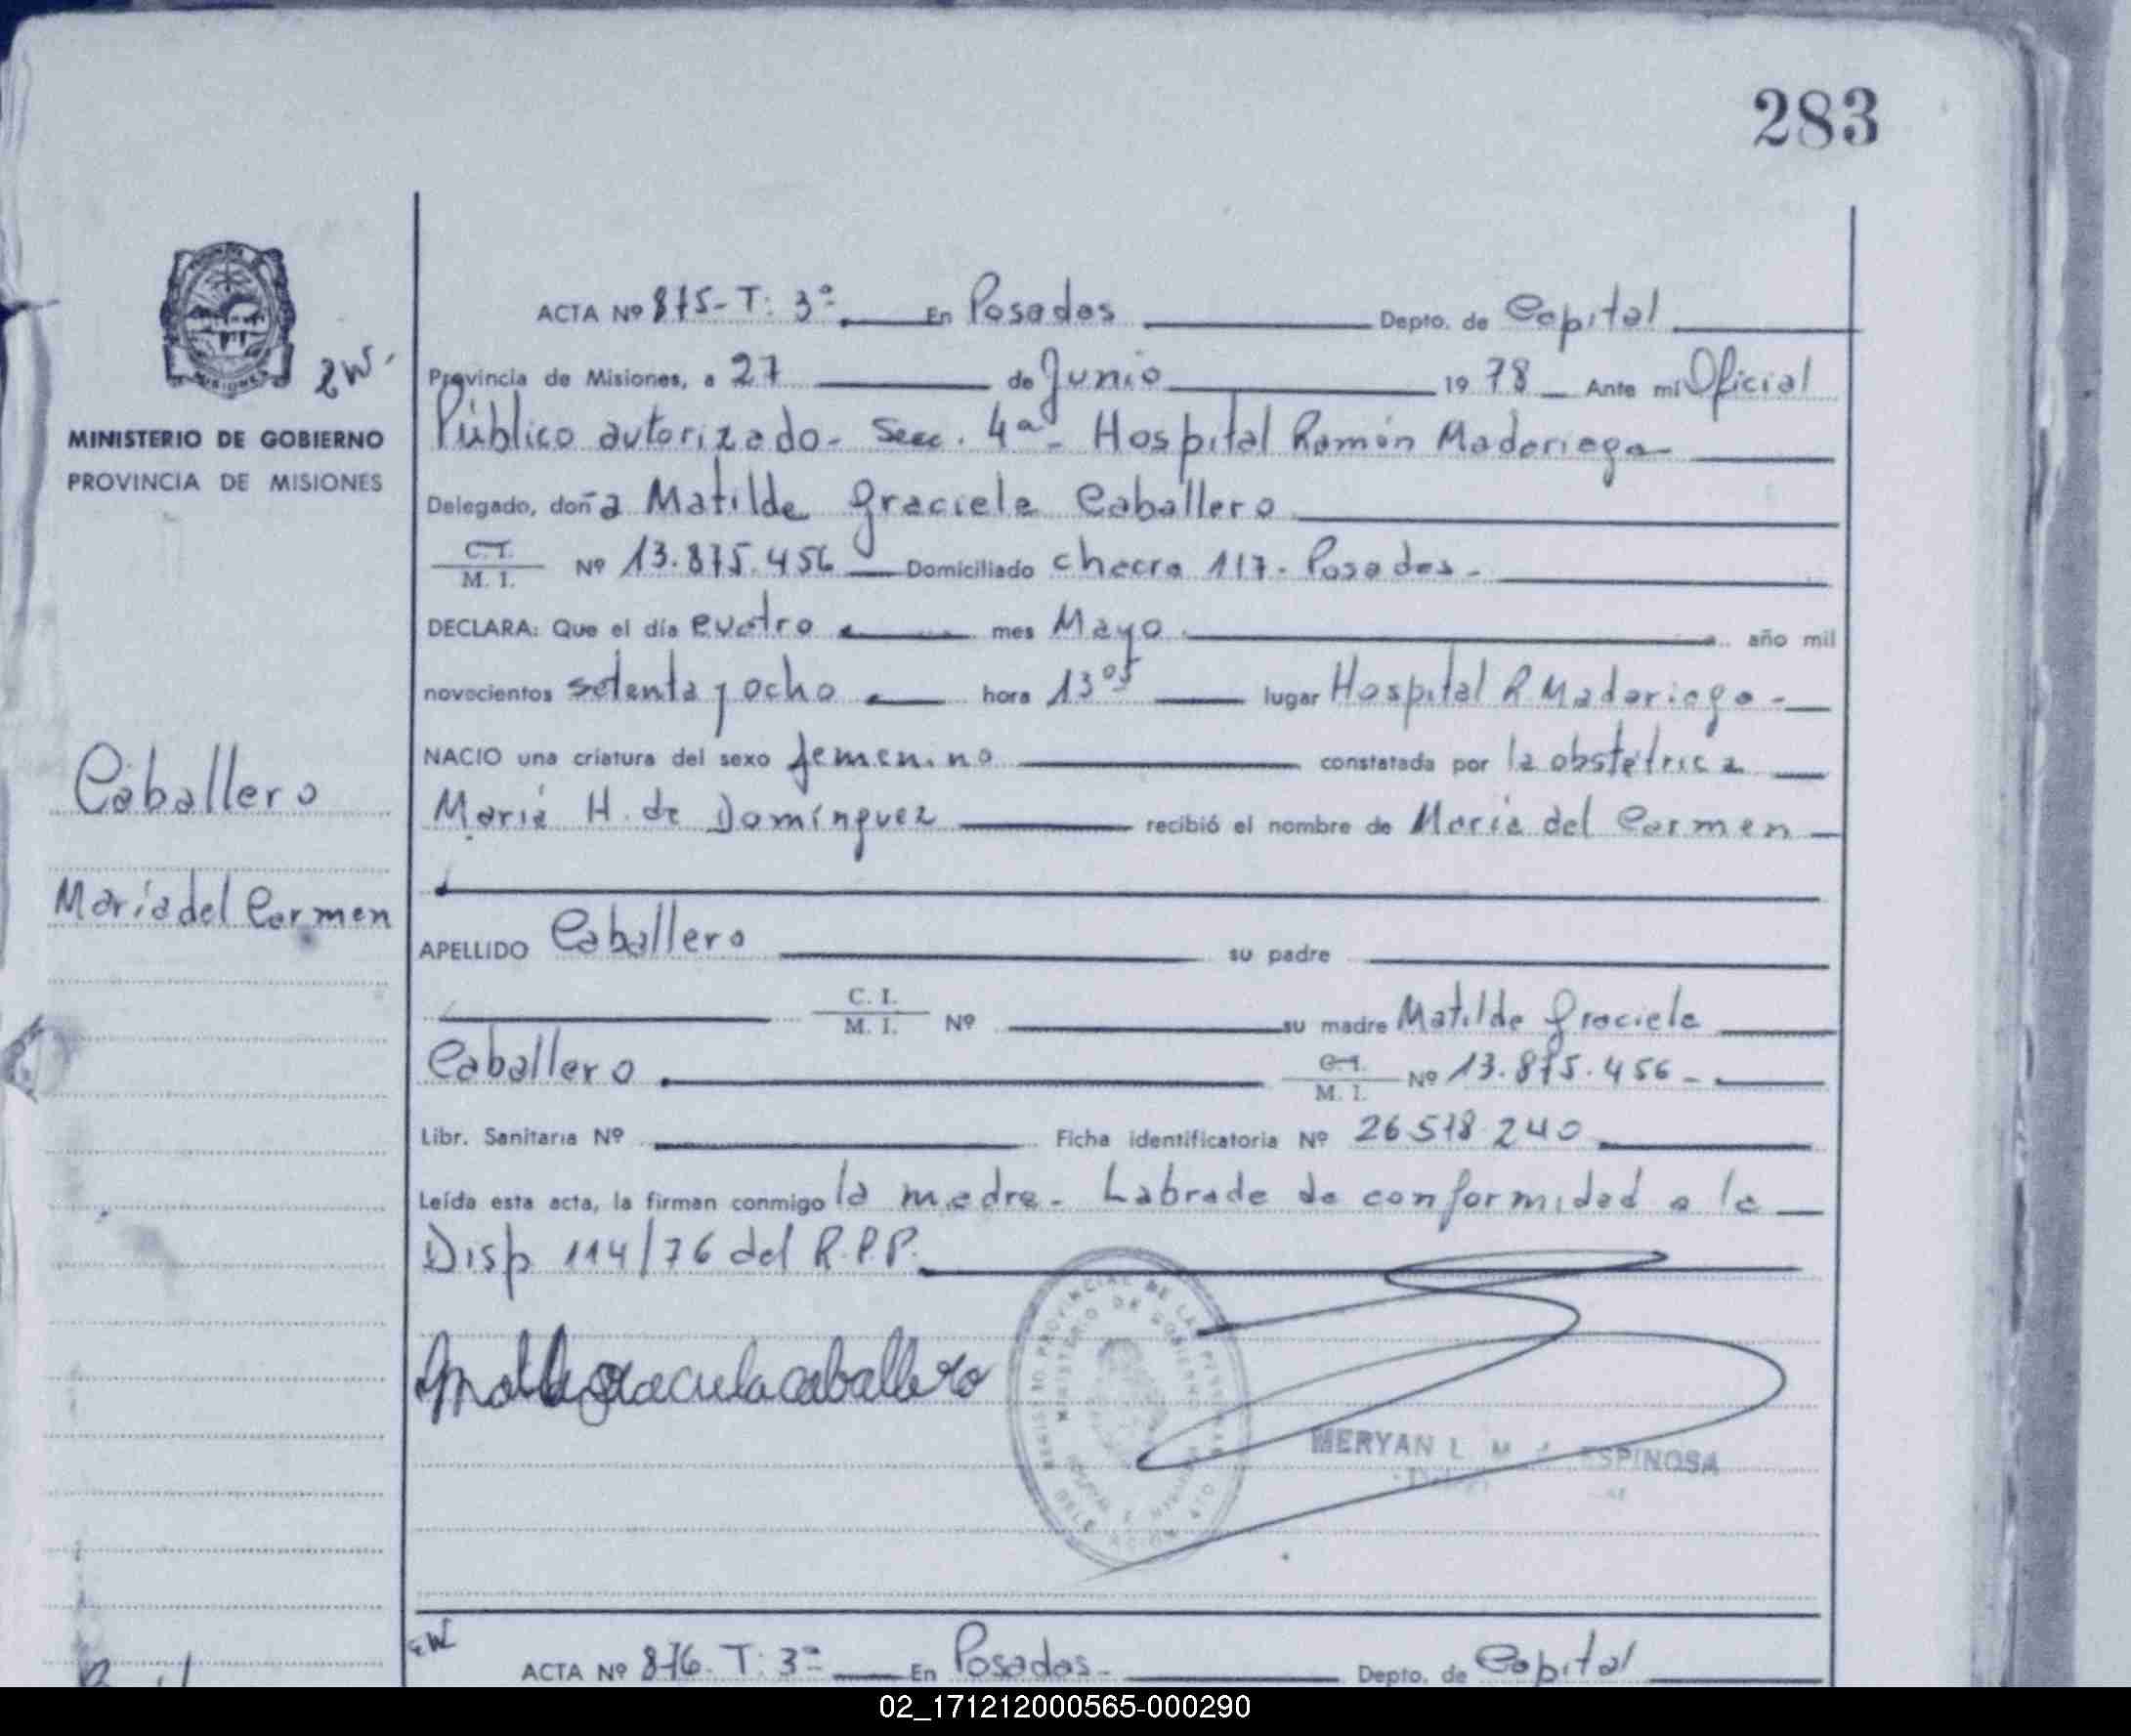 283
ACTA Nº 875-T: 3ª En Posadas Depto. de Capital
2W
Provincia de Misiones, a 27 de Junio 1978 Ante mi Oficial
MINISTERIO DE GOBIERNO
PROVINCIA DE MISIONES
Público autorizado- Secc. 4ª- Hospital Ramón Madariaga
Delegado, doña Matilde Graciela Caballero
C.I.
M. I. Nº 13.875.456 Domiciliado checra 117- Posadas-
DECLARA: Que el día cuatro mes Mayo año mil
novecientos setenta y ocho hora 13⁰⁵ lugar Hospital R Madariaga-
NACIO una criatura del sexo femenino constatada por la obstétrica
Caballero
María H. de Domínguez recibió el nombre de María del Carmen
María del Carmen
APELLIDO Caballero su padre
C. I.
M. I. Nº su madre Matilde Graciela
Caballero C.I.
M. I. Nº 13.875.456-
Libr. Sanitaria Nº Ficha identificatoria Nº 26578240
Leída esta acta, la firman conmigo la madre- Labrada de conformidad a la
Disp 114/76 del R.P.P.
Matilde graciela caballero
REGISTRO PROVINCIAL DE LAS PERSONAS
MINISTERIO DE GOBIERNO
MERYAN L. ESPINOSA
ACTA Nº 876. T: 3ª En Posadas- Depto. de Capital
02_171212000565-000290